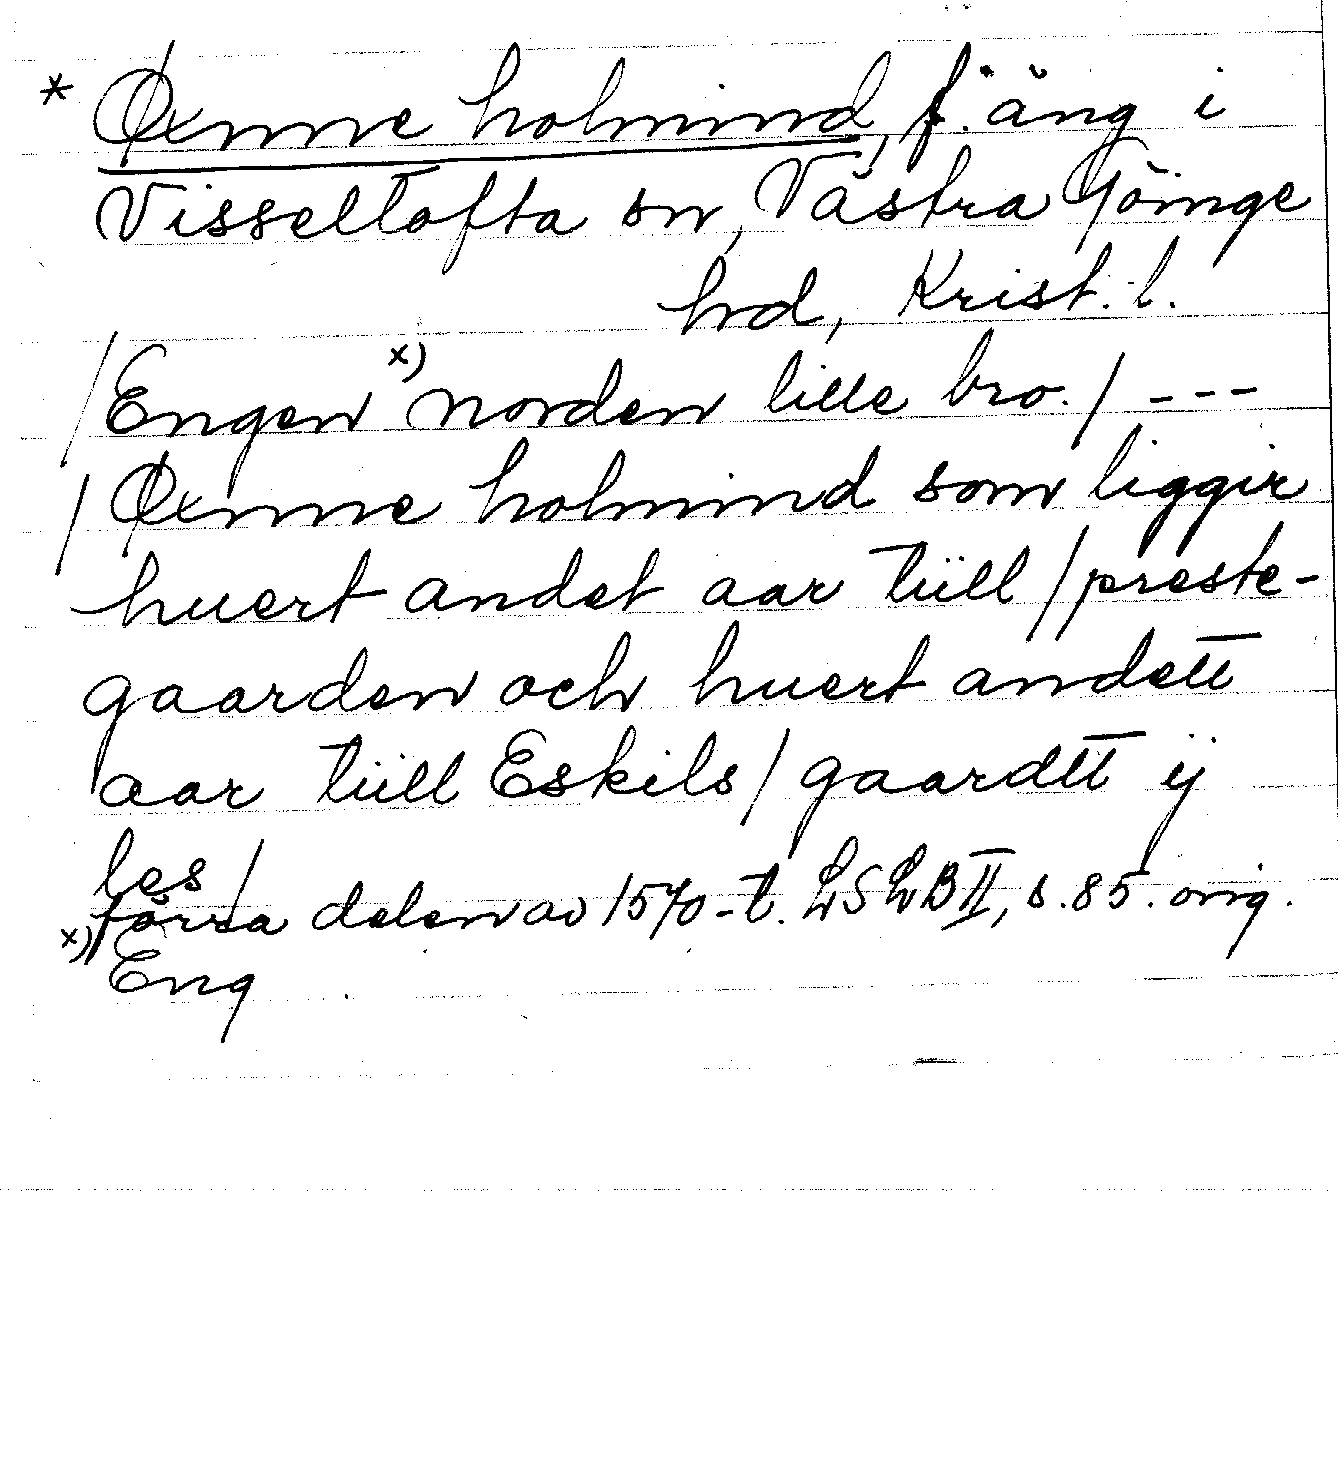 * Øxnne holmind, f. äng i
Visseltofta sn, Västra Göinge
hd, Krist. l.
/ Engen x) norden lille bro. / ---
/ Øxnne holmind som liggir
huert andet aar tüll / preste-
gaarden och huert andett
aar tüll Eskils / gaardtt ÿ
les /
förra delen av 1570-t. LSLB II, s. 85. orig.
x) Eng